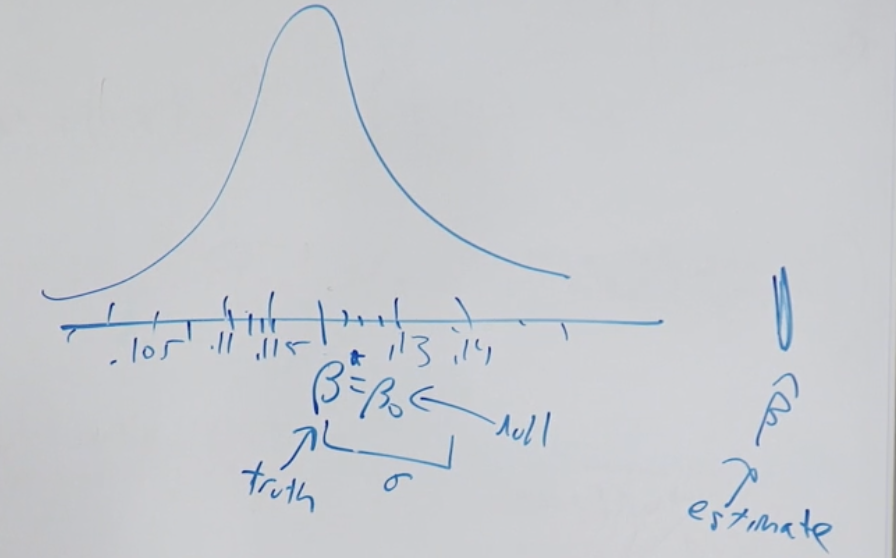 .105 .11 .115 .13 .14
β* = β₀ ← null
truth
σ
β̂
estimate